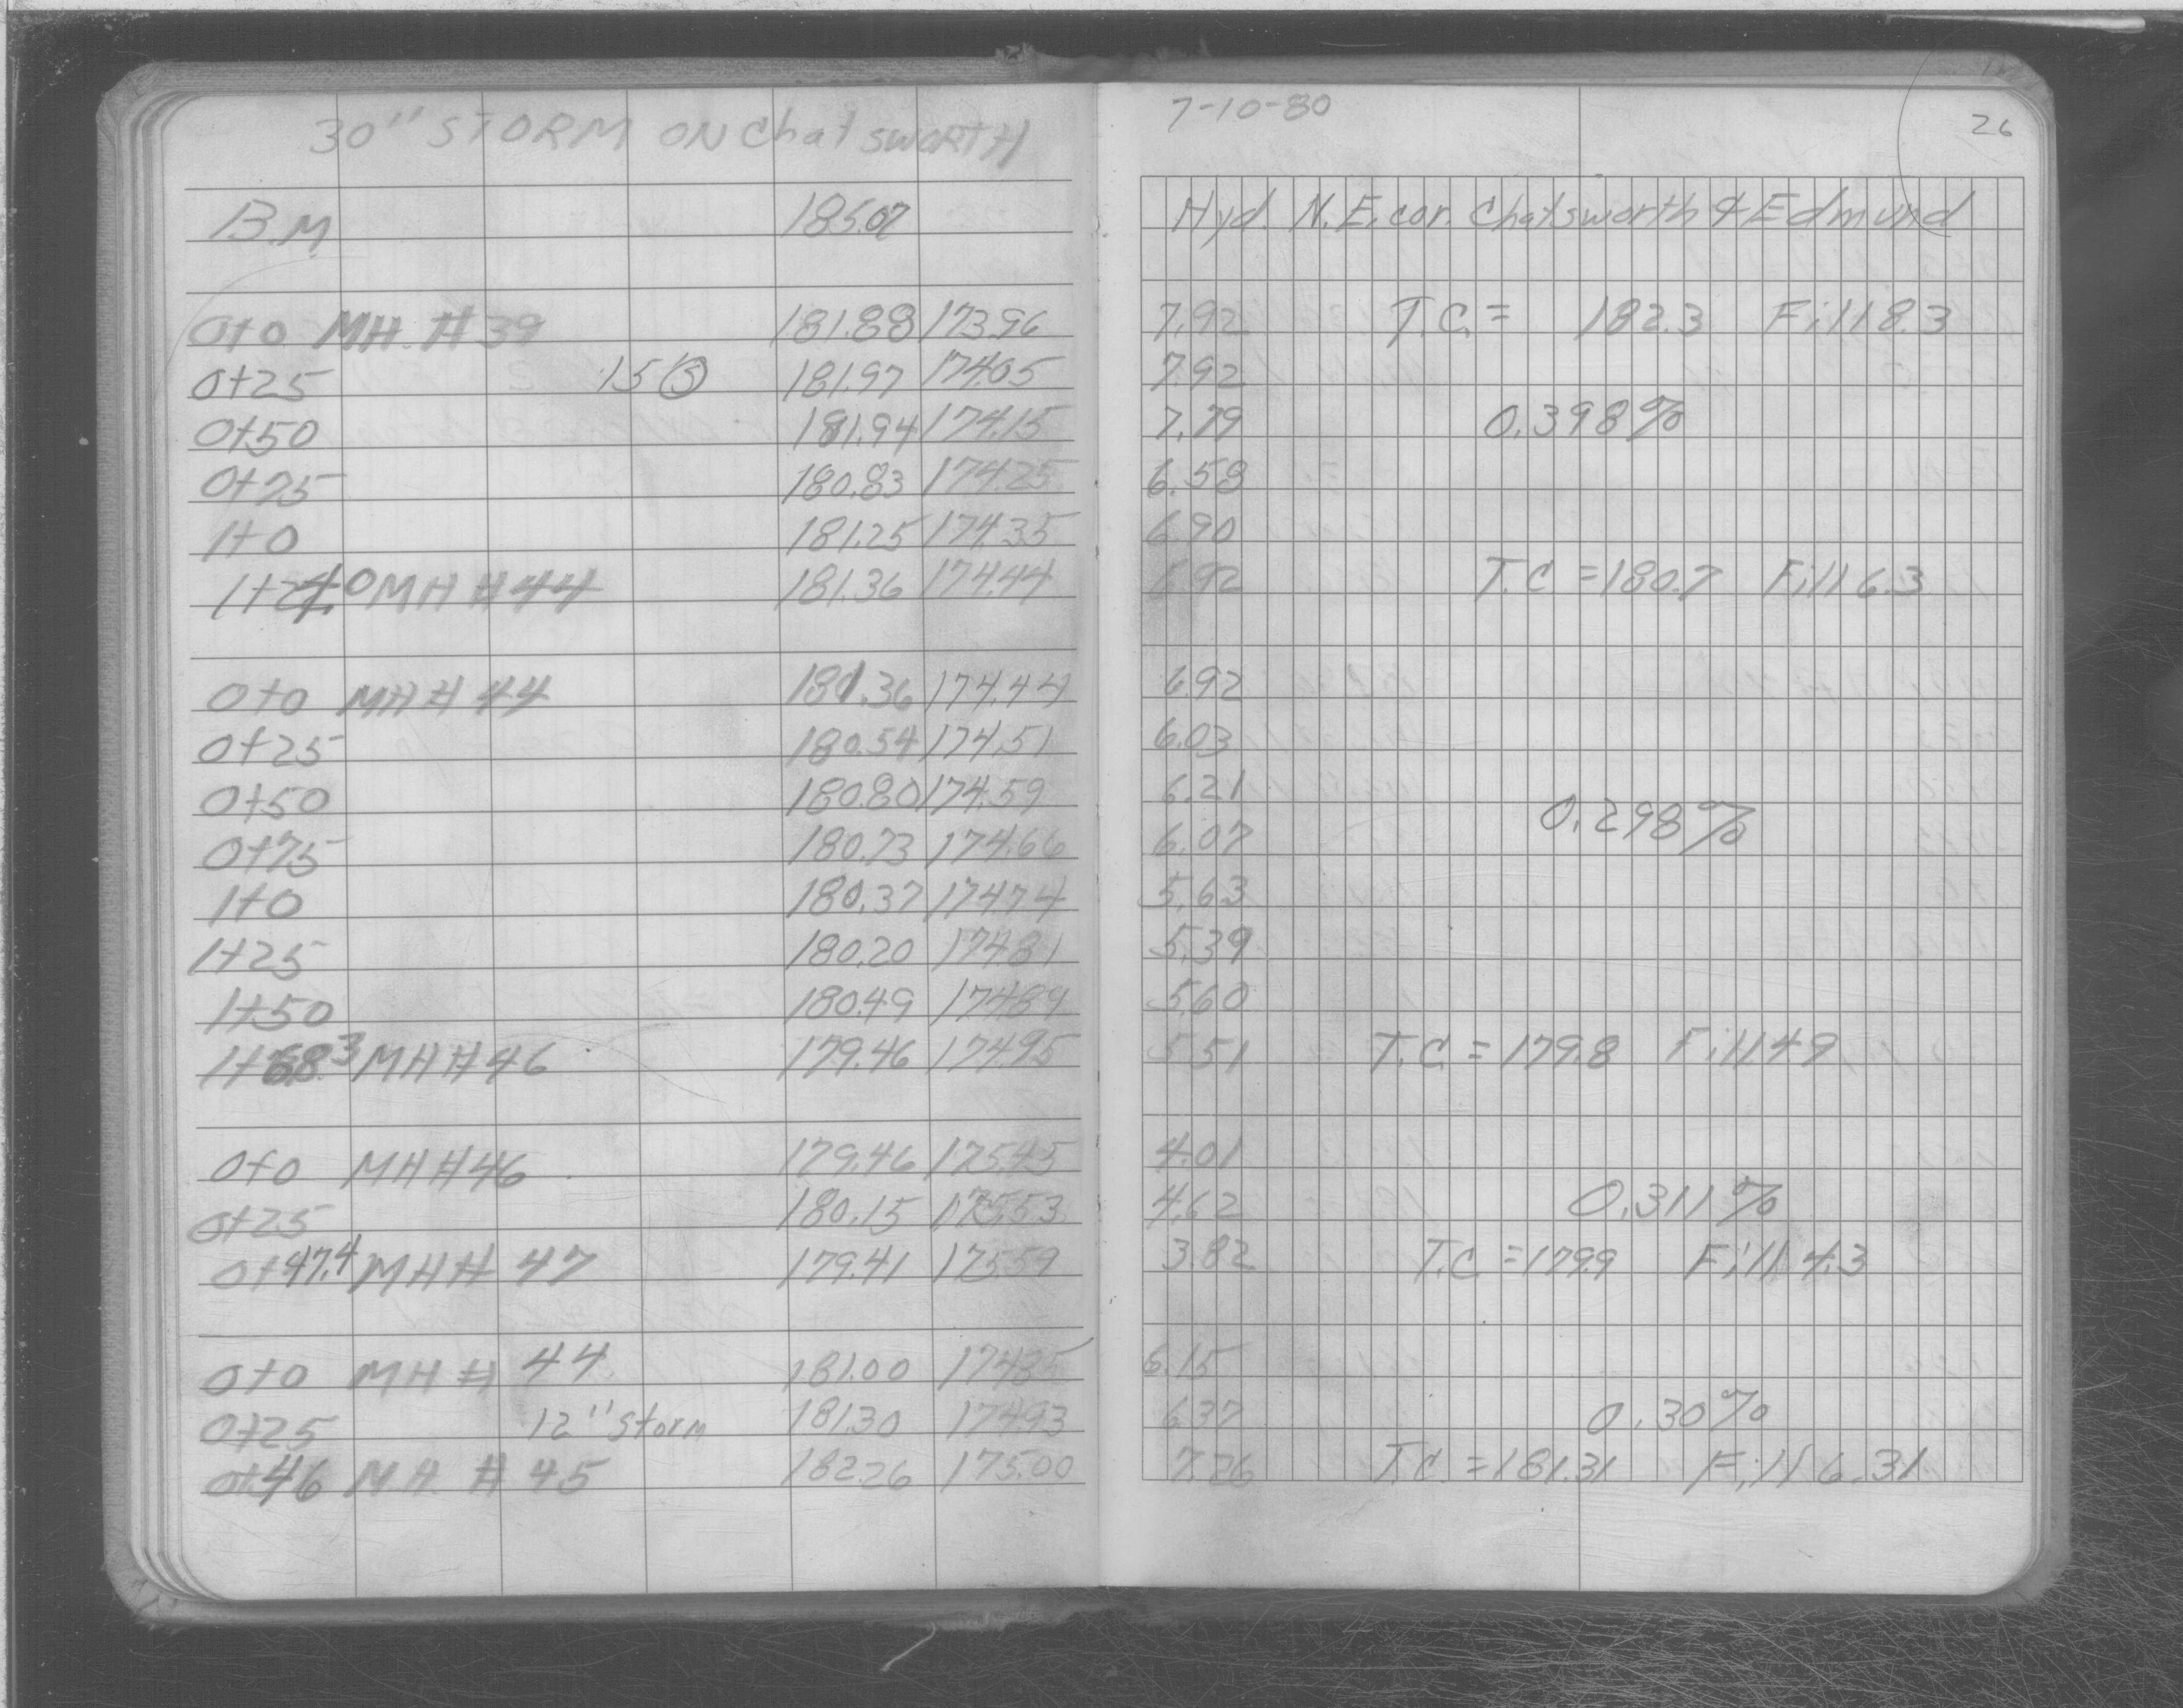 30" STORM ON Chatsworth
B.M 185.07
0+0 MH. #39 181.88 173.96
0+25 15' Ⓢ 181.97 174.05
0+50 181.94 174.15
0+75 180.83 174.25
1+0 181.25 174.35
1+24.0 MH #44 181.36 174.44
0+0 MH #44 181.36 174.44
0+25 180.54 174.51
0+50 180.80 174.59
0+75 180.73 174.66
1+0 180.37 174.74
1+25 180.20 174.81
1+50 180.49 174.89
1+68.3 MH #46 179.46 174.95
0+0 MH #46 179.46 175.45
0+25 180.15 175.53
0+47.4 MH # 47 179.41 175.59
0+0 MH # 44 181.00 174.85
0+25 12" Storm 181.30 174.93
0+46 MH # 45 182.26 175.00
7-10-80
26
Hyd. N.E. cor. Chatsworth & Edmund
7.92 T.C. = 182.3 Fill 8.3
7.92
7.79 0.398%
6.58
6.90
6.92 T.C = 180.7 Fill 6.3
6.92
6.03
6.21
6.07 0.298%
5.63
5.39
5.60
5.51 T.C. = 179.8 Fill 4.9
4.01
4.62 0.311%
3.82 T.C = 179.9 Fill 4.3
6.15
6.37 0.30%
7.26 T.C. = 181.31 Fill 6.31